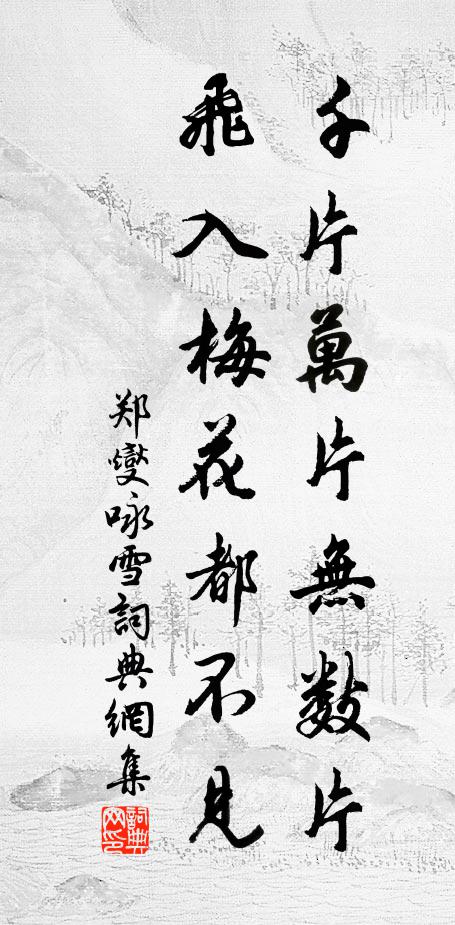 千片萬片無数片
飛入梅花都不見
郑燮咏雪詞典網集
詞典
网印